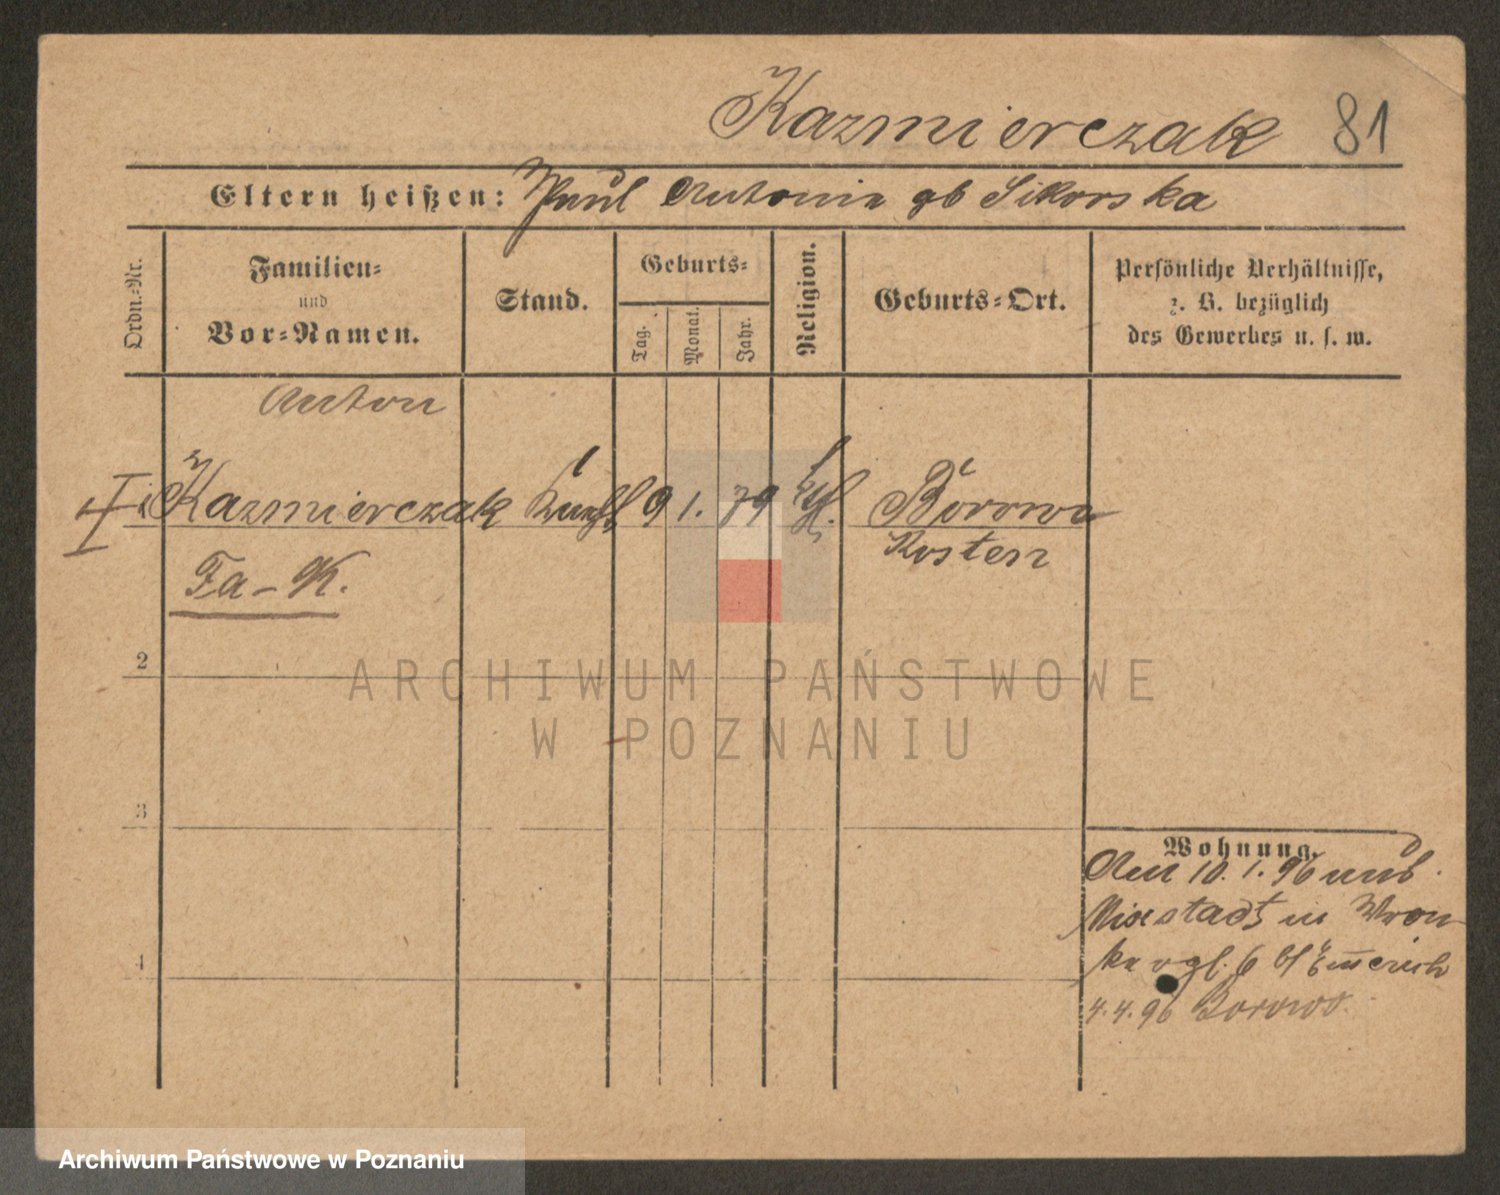 Kazmierczak 81
Eltern heißen: Paul Antonie gb Sikorska
Ordn.-Nr.
Familien-
und
Vor-Namen.
Stand.
Geburts-
Tag.
Monat.
Jahr.
Religion.
Geburts-Ort.
Persönliche Verhältnisse,
z. B. bezüglich
des Gewerbes u. s. w.
Anton
Kazmierczak 9 1. 79 Borowo
Kosten
Fa-K.
2
3
4
Wohnung.
10. 1. 96
in
4. 4. 96 Borowo.
ARCHIWUM PAŃSTWOWE
W POZNANIU
Archiwum Państwowe w Poznaniu